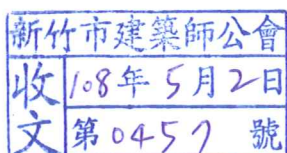 新竹市建築師公會
收文
108年5月2日
第0457號